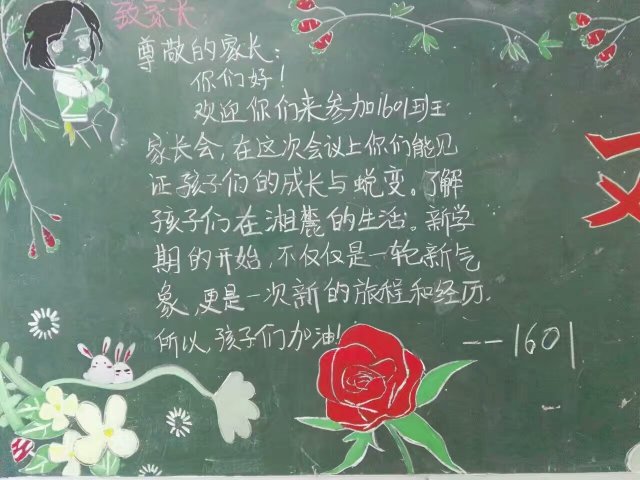 致家长:
尊敬的家长:
你们好!
欢迎你们来参加1601班
家长会,在这次会议上你们能见
证孩子们的成长与蜕变。了解
孩子们在湘麓的生活。新学
期的开始,不仅仅是一轮新气
象,更是一次新的旅程和经历.
所以,孩子们加油!
--1601